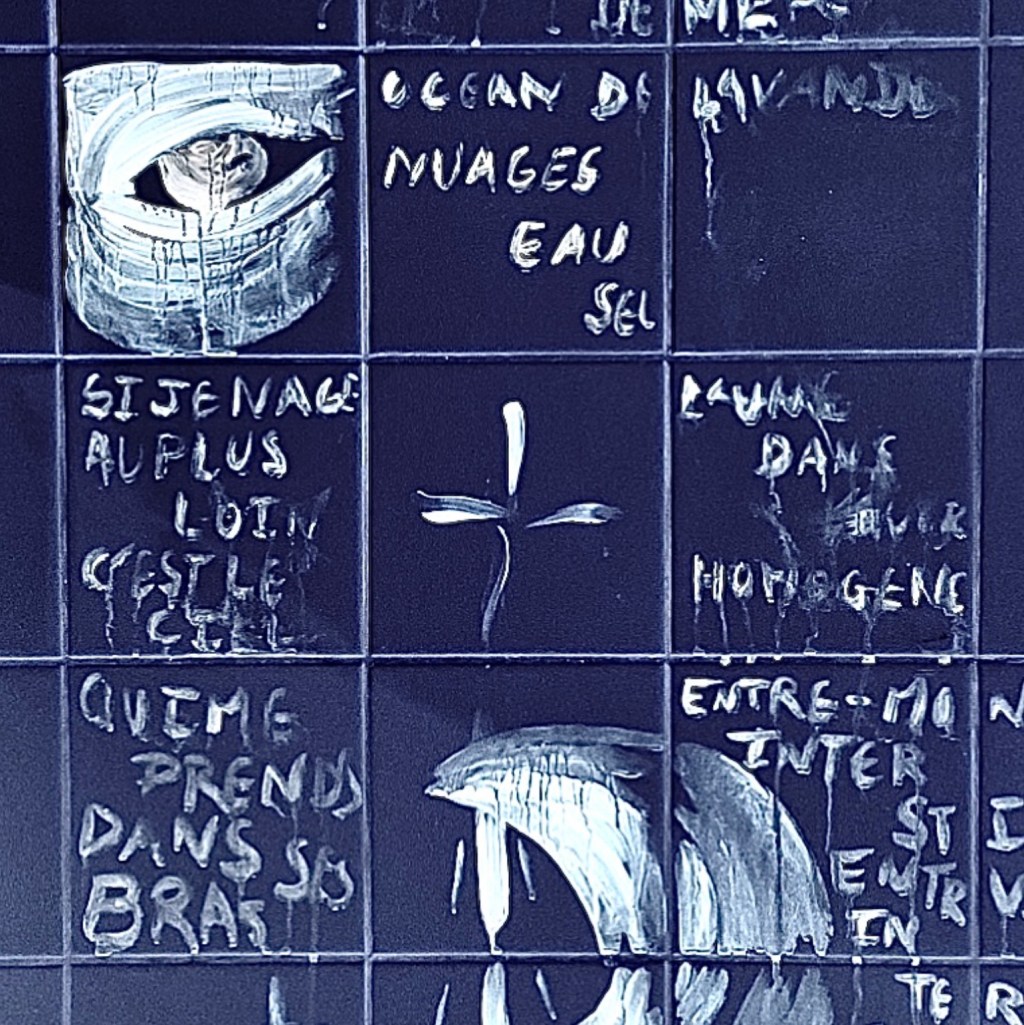 DE
ME
OCEAN DE
NUAGES
EAU
SEL
LAVANDE
SI JE NAGE
AU PLUS
LOIN
C'EST LE
CIEL
DANS
HOMOGENE
QUI ME
PRENDS
DANS SES
BRAS
ENTRE-MO
INTER
ST
ENTR
IN
TE R
N
I
V